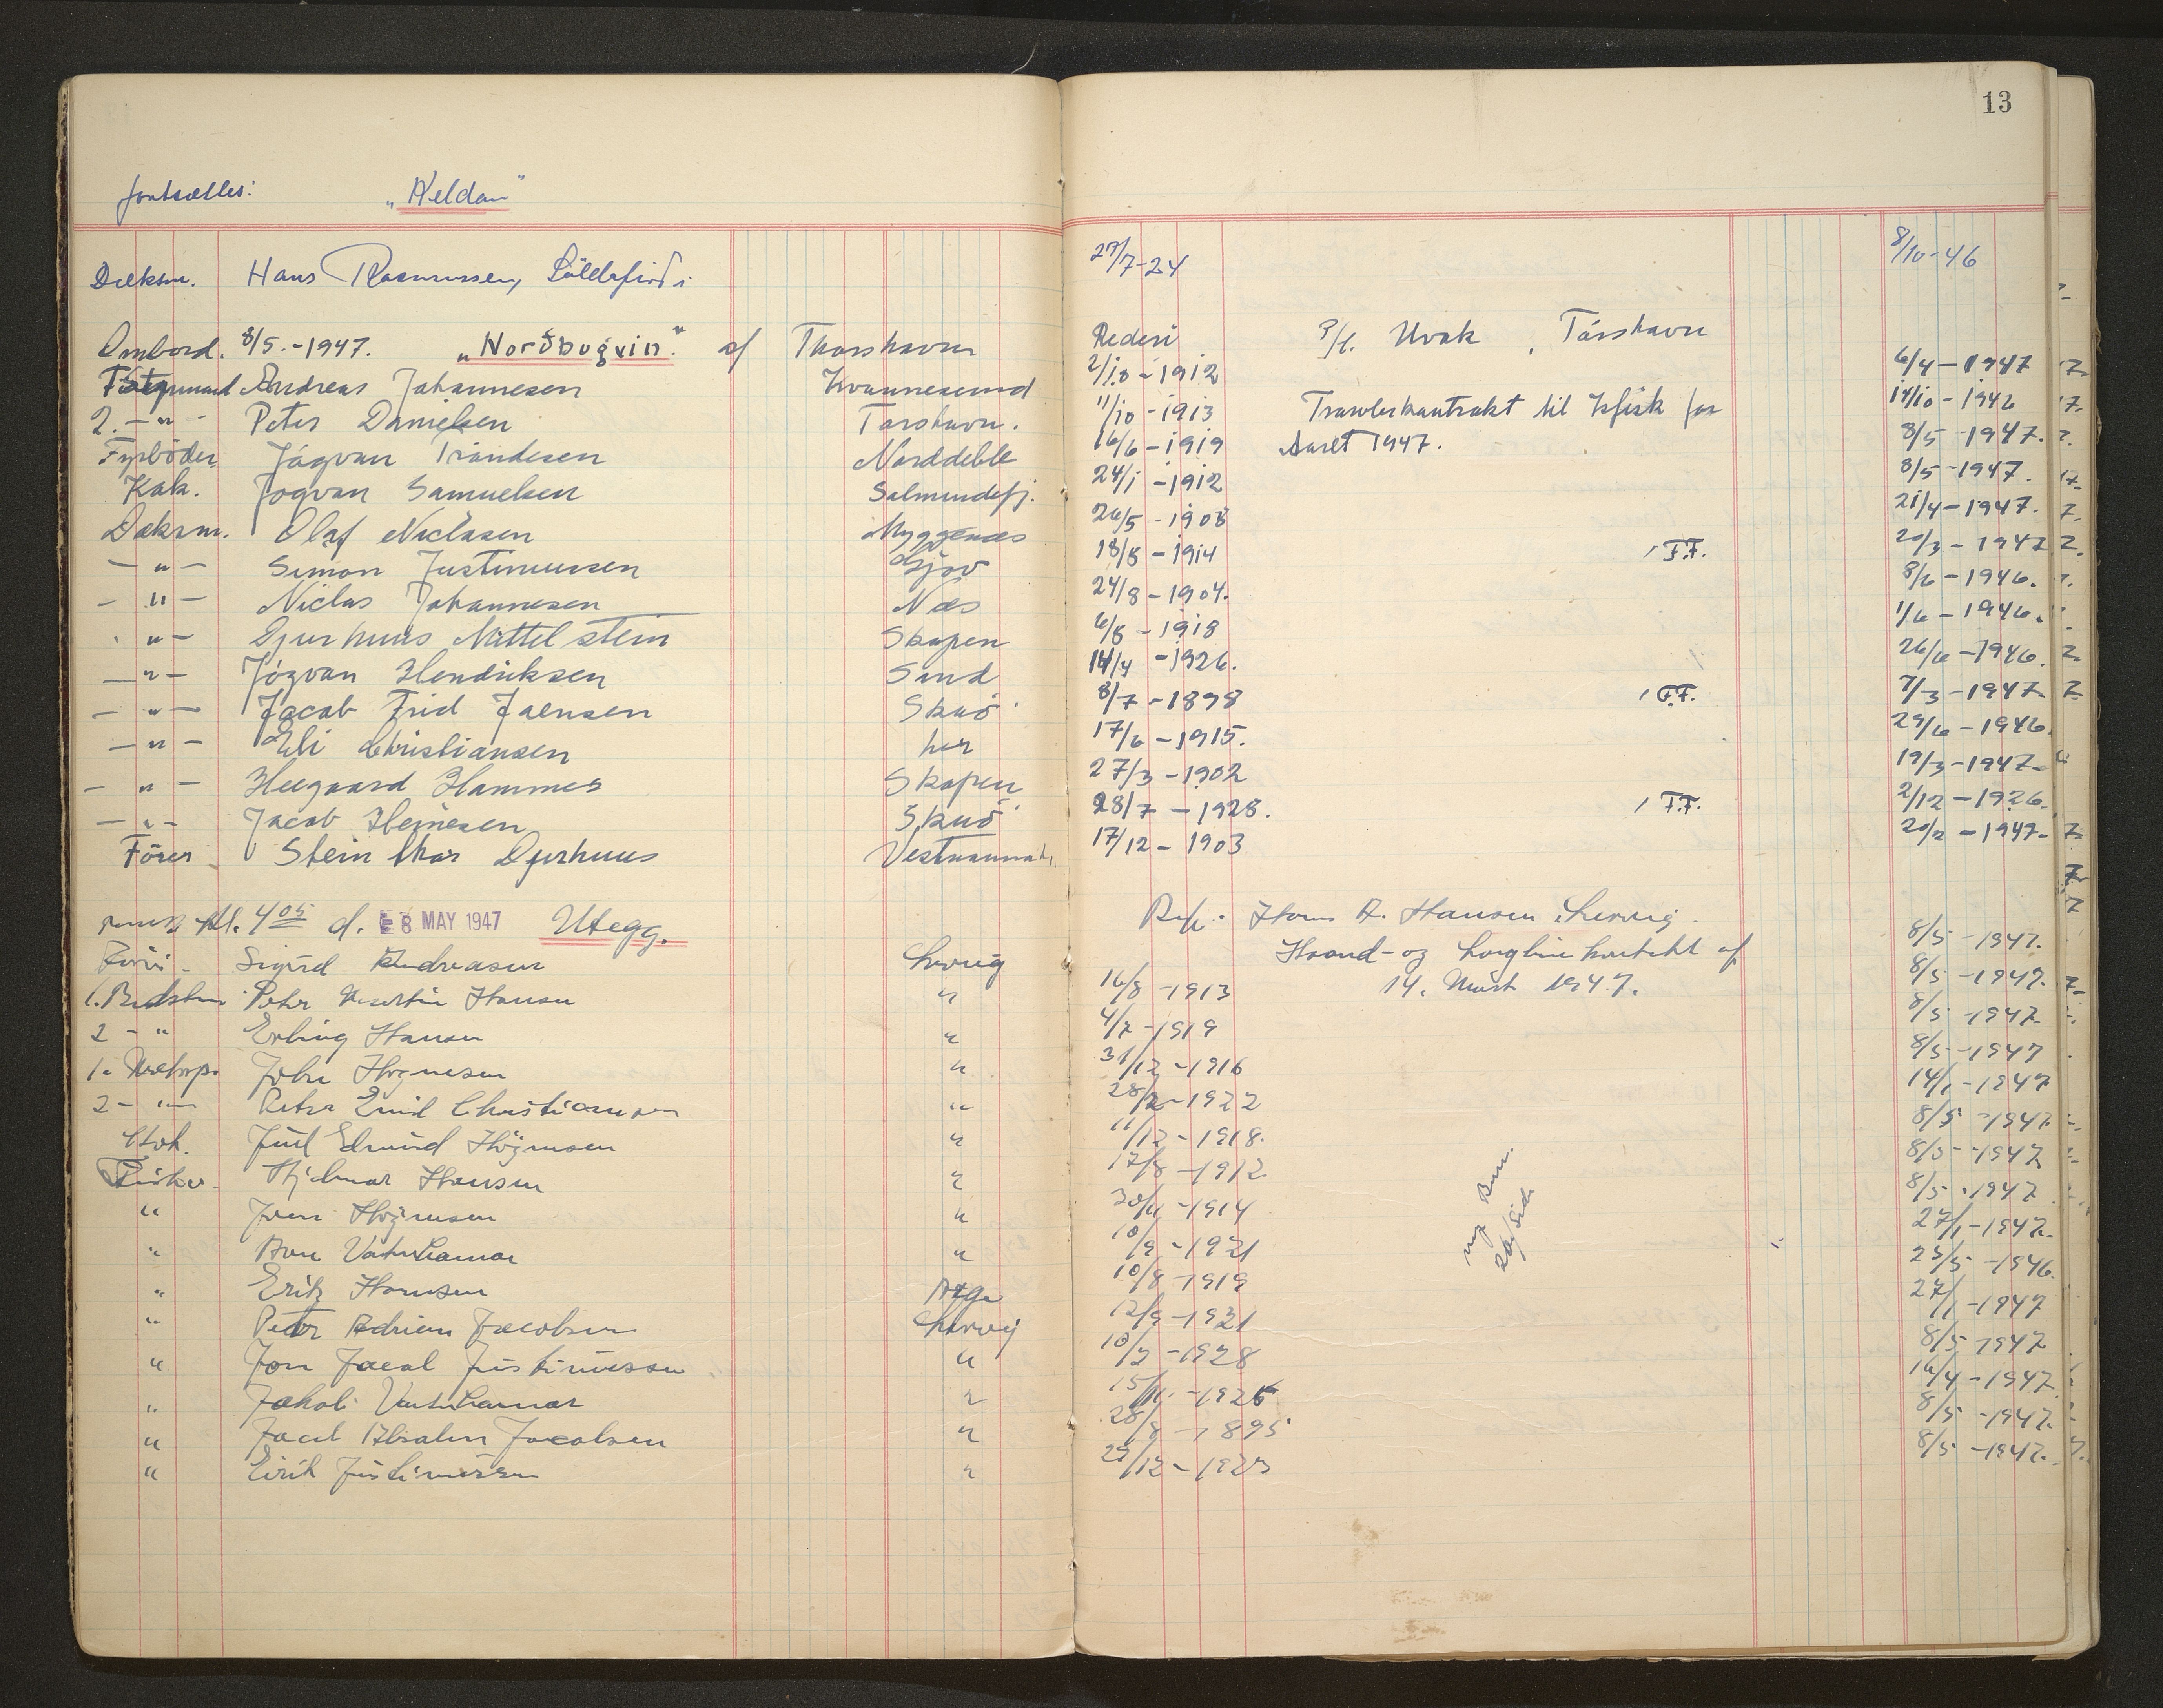 13
fortsættes: "Heldan"
Dæksm. Hans Rasmussen, 27/7-24 8/10-46
Ombord. 8/5.-1947. "Norðbugvin." af Thorshavn Rederi P/f. Hvak, Tórshavn
Andreas Johannesen Kvannesund 2/10-1912 6/4-1947
2. -"- Peter Danielsen Torshavn. 11/10-1913 Trawlerkontrakt til Isfisk for 14/10-1946
Fyrböder Jógvan Trándesen Norddeble 16/6-1919 Aaret 1947. 8/5-1947.
Kok. Jógvan Samuelsen Salmundefj. 24/1-1912 8/5-1947.
Daksm. Olaf Niclasen Myggenæs 26/5-1908 21/4-1947.
-"- Simon Justinussen Gjov 18/8-1914 1 F.F. 20/3-1947
-"- Niclas Johannesen Næs 24/8-1904. 8/6-1946.
-"- Djurhuus Mittelstein Skopen 6/8-1918 1/6-1946.
-"- Jógvan Hendriksen Sund 14/4-1926. 26/6-1946.
-"- Jacob Frid Jaensen Skuö 8/7-1898 1 F.F. 7/3-1947
-"- Eli Christiansen her 17/6-1915. 29/6-1946.
-"- Heegaard Hammer Skopen 27/3-1902 19/3-1947-
-"- Jacob Heinesen Skuö 28/7-1928. 1 F.F. 2/12-1926.
Förer Stein Ihar Djurhuus Vestmannah. 17/12-1903 20/2-1947-
Kl. 4 05 d. 8 MAY 1947 Utegg. Hans A. Hansen Lervig.
Sigurd Andreasen Lervig Haand- og Langline kontrakt af 8/5-1947.
Peter Martin Hansen " 16/8-1913 14. Marts 1947. 8/5-1947.
2 - " Erling Hansen " 4/7-1919 8/5-1947
John Högnesen " 31/12-1916 8/5-1947
2 - " Peter Emil Christiansen " 28/2-1922 14/1-1947
Kok. Juul Edmund Högnesen " 11/12-1918. 8/5-1947.
Fisker. Hjalmar Hansen " 17/8-1912 8/5-1947
" Joen Högnesen " 30/11-1914 8/5-1947
" Vatnhamar " 10/9-1921 27/1-1947.
" Erik Hansen 10/8-1919 25/5-1946.
" Peter Adrian Jacobsen Lervig 12/9-1921 27/1-1947
" Jon Jacob Justinussen " 10/2-1928 8/5-1947
" Jakob Vatnhamar " 15/11-1926 16/4-1947
" Jacob Absalon Jacobsen " 28/8-1895 8/5-1947.
" Eirik Justinussen " 29/12-1923 8/5-1947.